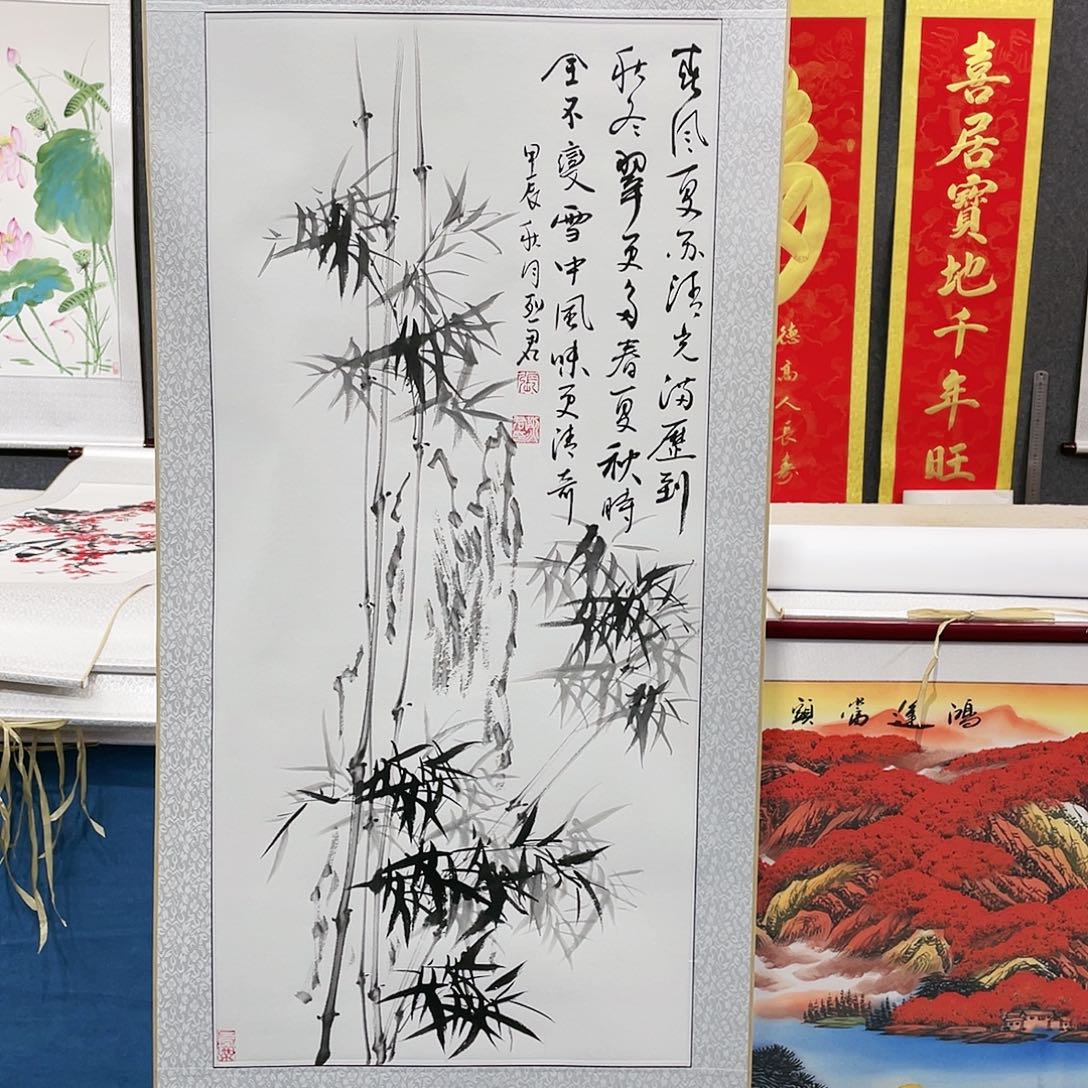 春风夏雨清光满歷到
秋冬翠更多春夏秋時
全不變雪中風味更清奇
甲辰秋月
喜居寶地千年旺
德高人長寿
鴻運當頭